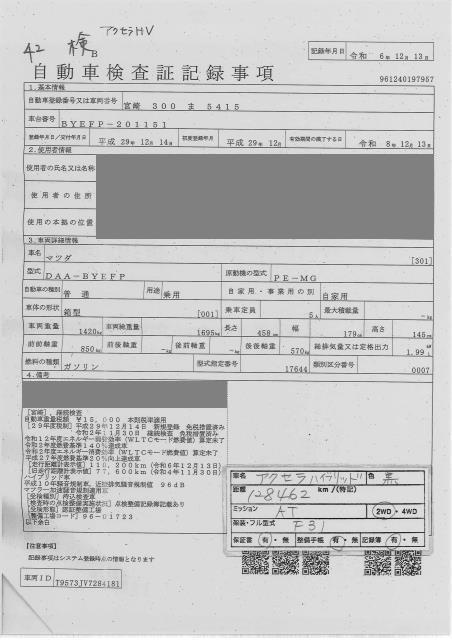 アクセラHV
42 検B
記録年月日 令和 6年 12月 13日
自動車検査証記録事項
961240197957
1.基本情報
自動車登録番号又は車両番号 宮崎 300 ま 5415
車台番号 BYEFP-201151
登録年月日/交付年月日 平成 29年 12月 14日 初度登録年月 平成 29年 12月 有効期間の満了する日 令和 8年 12月 13日
2.使用者情報
使用者の氏名又は名称
使用者の住所
使用の本拠の位置
3.車両詳細情報
車名 マツダ [301]
型式 DAA-BYEFP 原動機の型式 PE-MG
自動車の種別 普通 用途 乗用 自家用・事業用の別 自家用
車体の形状 箱型 [001] 乗車定員 5人 最大積載量 -kg
車両重量 1420kg 車両総重量 1695kg 長さ 458cm 幅 179cm 高さ 145cm
前前軸重 850kg 前後軸重 -kg 後前軸重 -kg 後後軸重 570kg 総排気量又は定格出力 1.99L
燃料の種類 ガソリン 型式指定番号 17644 類別区分番号 0007
4.備考
[宮崎], 継続検査
自動車重量税額 ¥15,000 本則税率適用
[29年度税制]平成29年12月14日 新規登録 免税措置済み
令和2年11月30日 継続検査 免税措置済み
令和12年度エネルギー消費効率(WLTCモード燃費値)算定未了
令和2年度燃費基準140%達成車
令和2年度エネルギー消費効率(WLTCモード燃費値)算定未了
平成27年度燃費基準20%向上達成車
[走行距離計表示値]110,200km(令和6年12月13日)
[旧走行距離計表示値]77,600km(令和4年11月30日)
ハイブリッド車
平成10年騒音規制車、近接排気騒音規制値 96dB
マフラー加速騒音規制適用車
[受検種別]持込検査車
[検査時の点検整備実施状況]点検整備記録簿記載あり
[受検形態]認証整備工場
[整備工場コード]96-01723
以下余白
車名 アクセラハイブリッド 色 黒
距離 128462 km/(特記)
ミッション AT 2WD・4WD
架装・フル型式 F31
保証書 有・無 整備手帳 有・無 記録簿 有・無
[注意事項]
記録事項はシステム登録時点の情報となります
車両ID T9573JV7284181